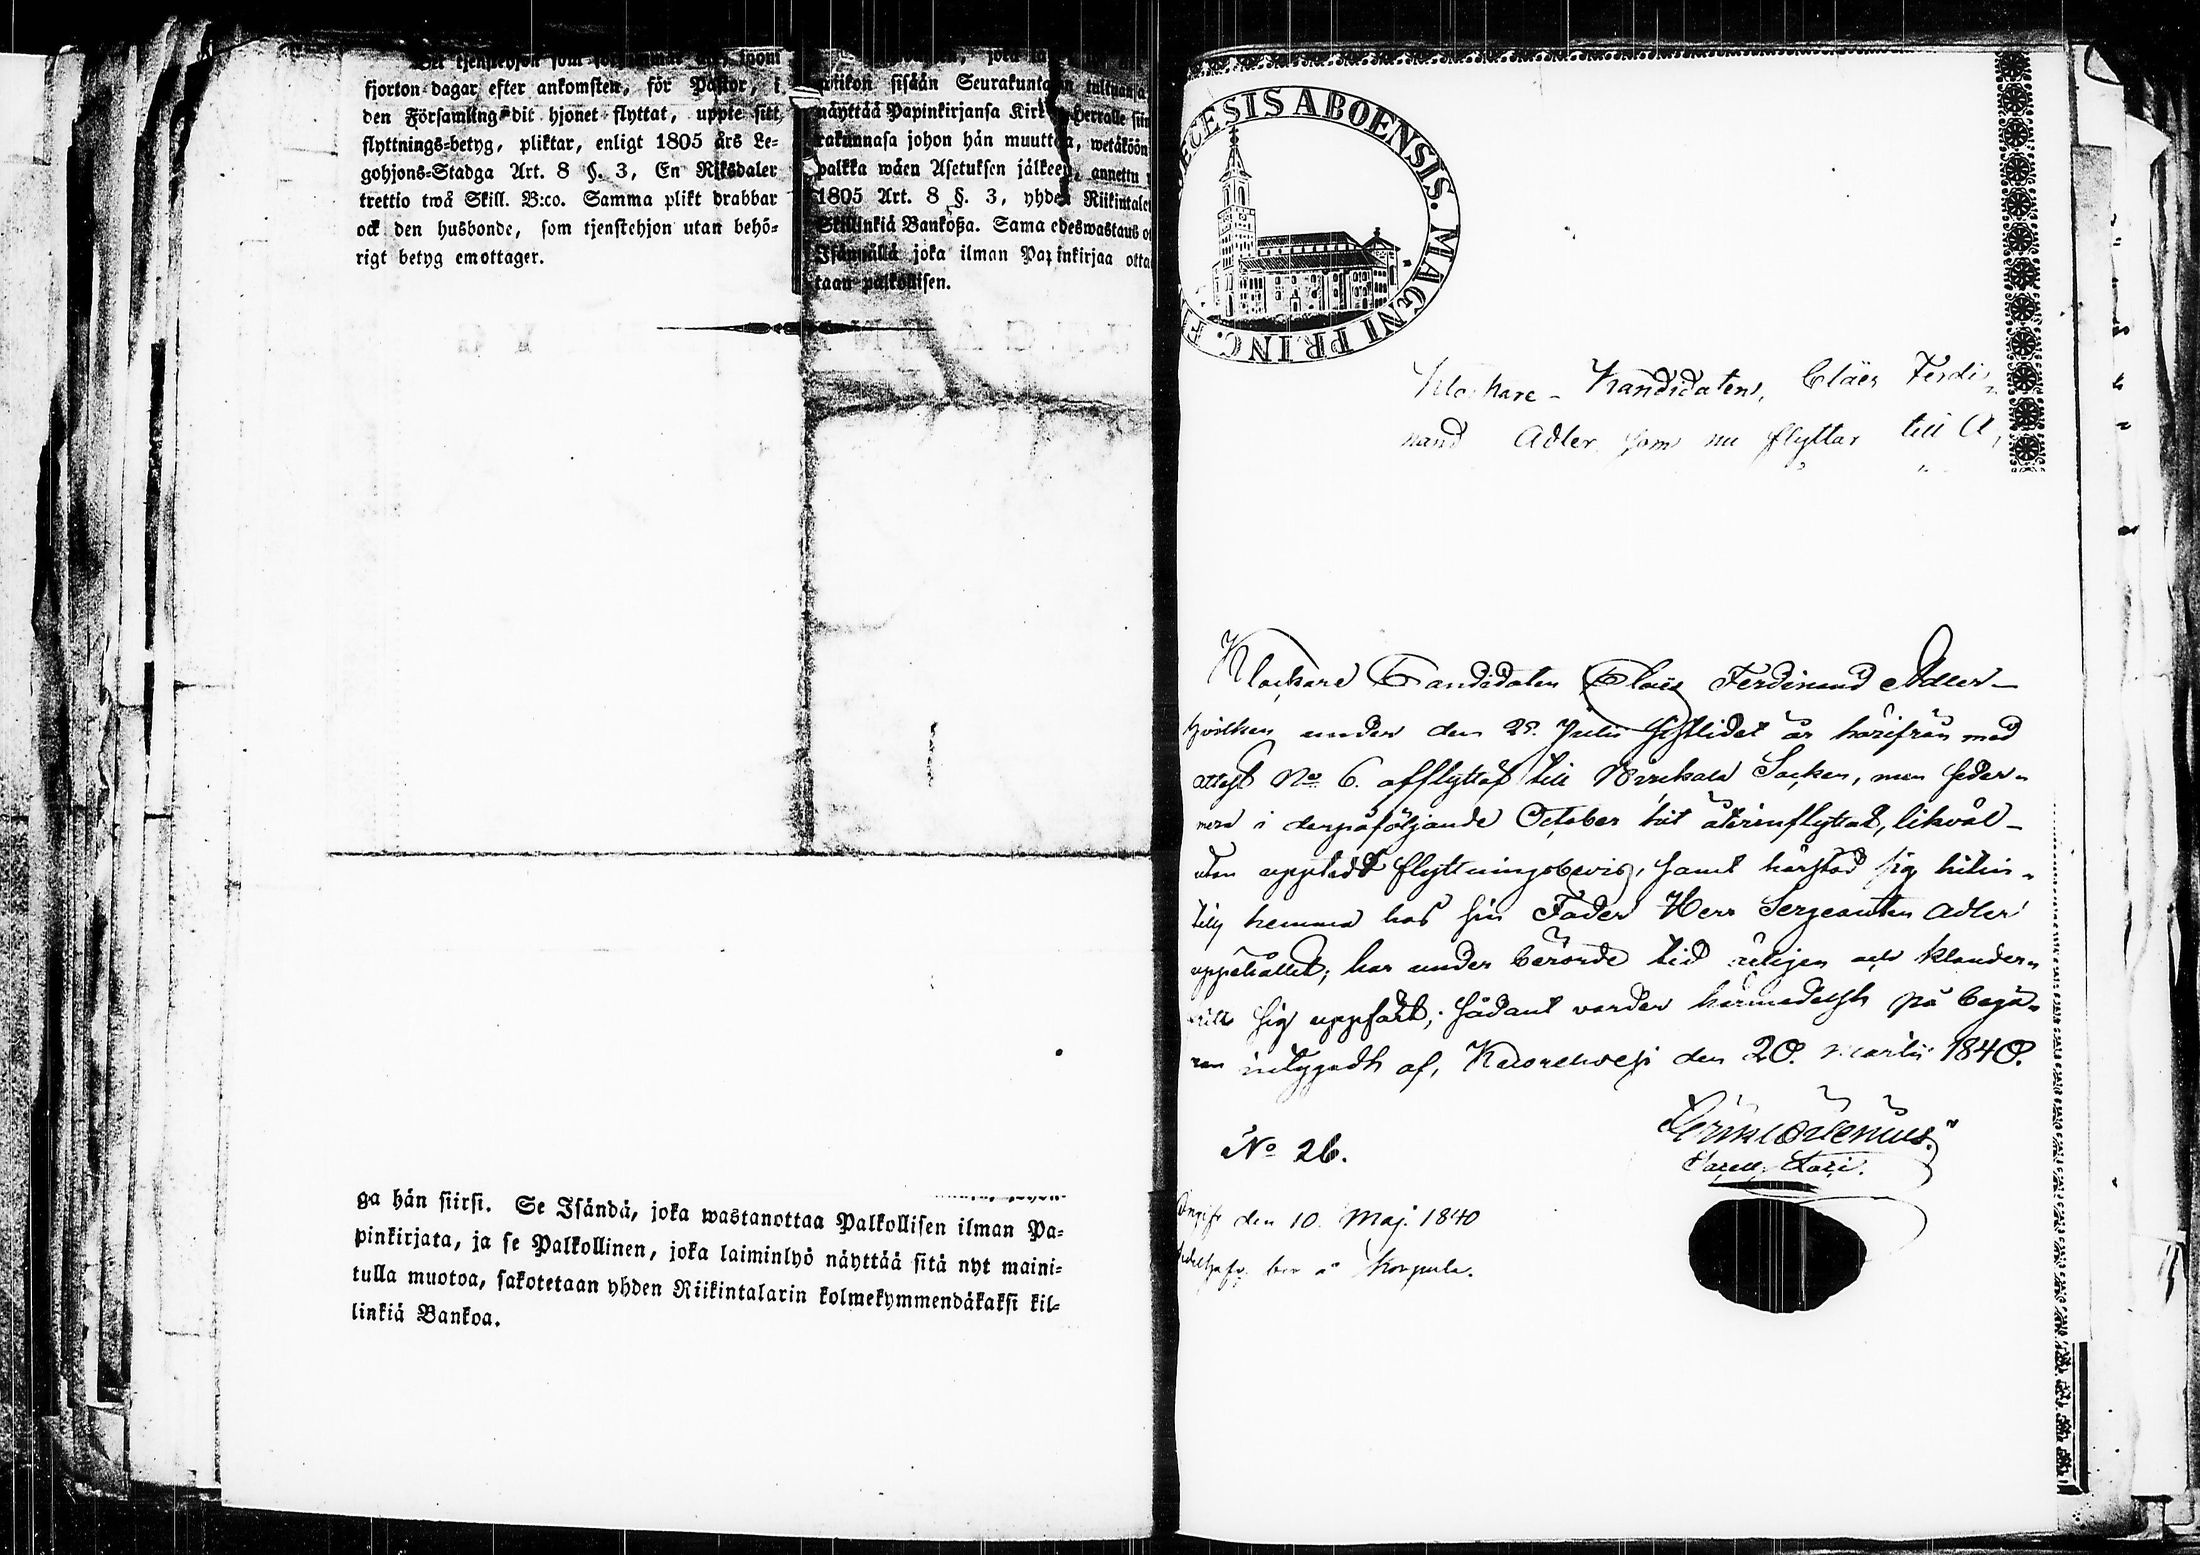 fjorton dagar efter ankomsten, för Pastor, i
den Församling dit hjonet flyttat, uppte sitt
flyttnings-betyg, pliktar, enligt 1805 års Le-
gohjons-Stadga Art. 8 §. 3, En Riksdaler
trettio twå Skill. B:co. Samma plikt drabbar
ock den husbonde, som tjenstehjon utan behö-
rigt betyg emottager.
wiikon sisään Seurakuntaan tultuansa
näyttää Papinkirjansa Kirkkoherralle siin
rakunnasa johon hän muuttaa, wetäköön
palkka wäen Asetuksen jälkeen, annettu
1805 Art. 8 §. 3, yhden Riikintaler
Skillinkiä Bankoßa. Sama edeswastaus o
Isännällä joka ilman Papinkirjaa otta
taan palkollisen.
ga hän siirsi. Se Isändä, joka wastanottaa Palkollisen ilman Pa-
pinkirjata, ja se Palkollinen, joka laiminlyö näyttää sitä nyt maini-
tulla muotoa, sakotetaan yhden Riikintalarin kolmekymmendäkaksi kil-
linkiä Bankoa.
ECESIS ABOENSIS. MAGNI PRINC. F
Klockare-Kandidaten, Cläes Ferdi-
nand Adler som nu flyttar till
Klockare Candidaten Claës Ferdinand Adler
hvilken under den 25. Julii sistlidet år härifrån med
attest No 6. afflyttat till Birckala Socken, men seder-
mera i derpåföljande October hit återinflyttat, likväl
utan upptedt flyttningsbevis, samt härstäd sig hitin-
till hemma hos sin Fader Herr Sergeanten Adler
uppehållit; har under berörde tid ärligen och klander-
fritt sig uppfört; sådant varder härmedelst på begä-
ran intygadt af, Kuorehvesi den 20. Martii 1840.
No 26.
Angifv den 10. Maj. 1840